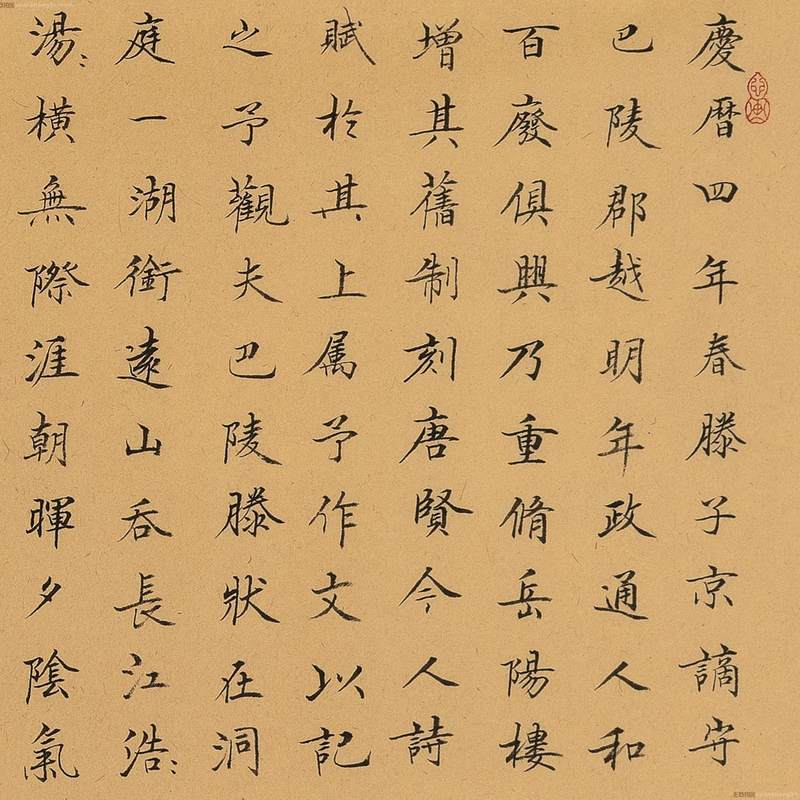 慶曆四年春滕子京謫守
巴陵郡越明年政通人和
百廢俱興乃重脩岳陽樓
增其舊制刻唐賢今人詩
賦於其上属予作文以記
之予觀夫巴陵勝狀在洞
庭一湖銜遠山吞長江浩〻
湯〻橫無際涯朝暉夕陰氣